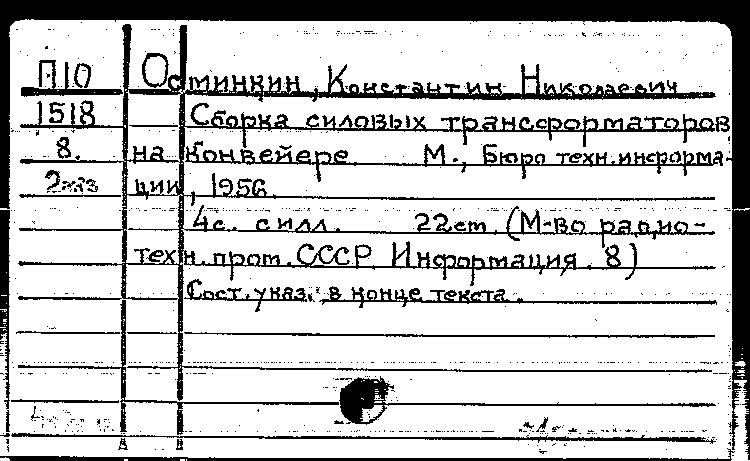 П10 Осминкин, Константин Николаевич
1518 Сборка силовых трансформаторов
8. на конвейере М., Бюро техн.информа-
2экз ции, 1956.
4с. с илл. 22см. (М-во радио-
техн.пром.СССР Информация. 8)
Сост. указ. в конце текста.